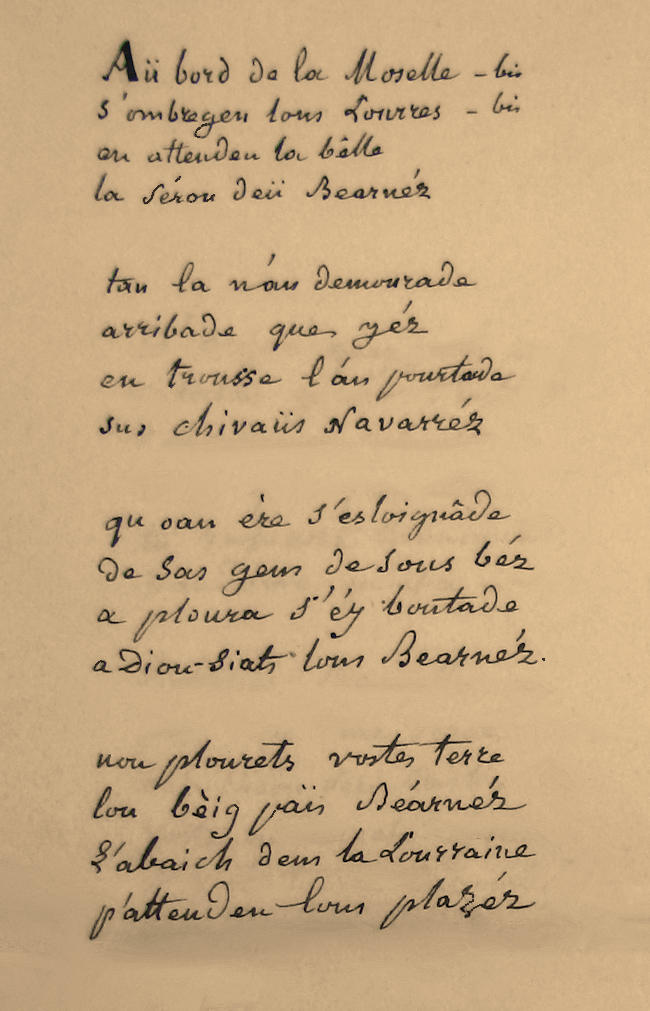 Aü bord de la Moselle - bis
s'ombregen lous Lourres - bis
en attenden la bêlle
la Sérou deü Bearnéz
tan la n'án demourade
arribade que yéz
en trousse l'án pourtade
sus chivaüs Navarréz
qu oan ère s'esloignâde
de sas gens de sous béz
a ploura s'éy boutade
a Diou-Siats lous Bearnéz.
nou plourets vostes terre
lou bèig païs Béarnéz
L'abaich dens la Lourraine
p'attenden lous plazéz